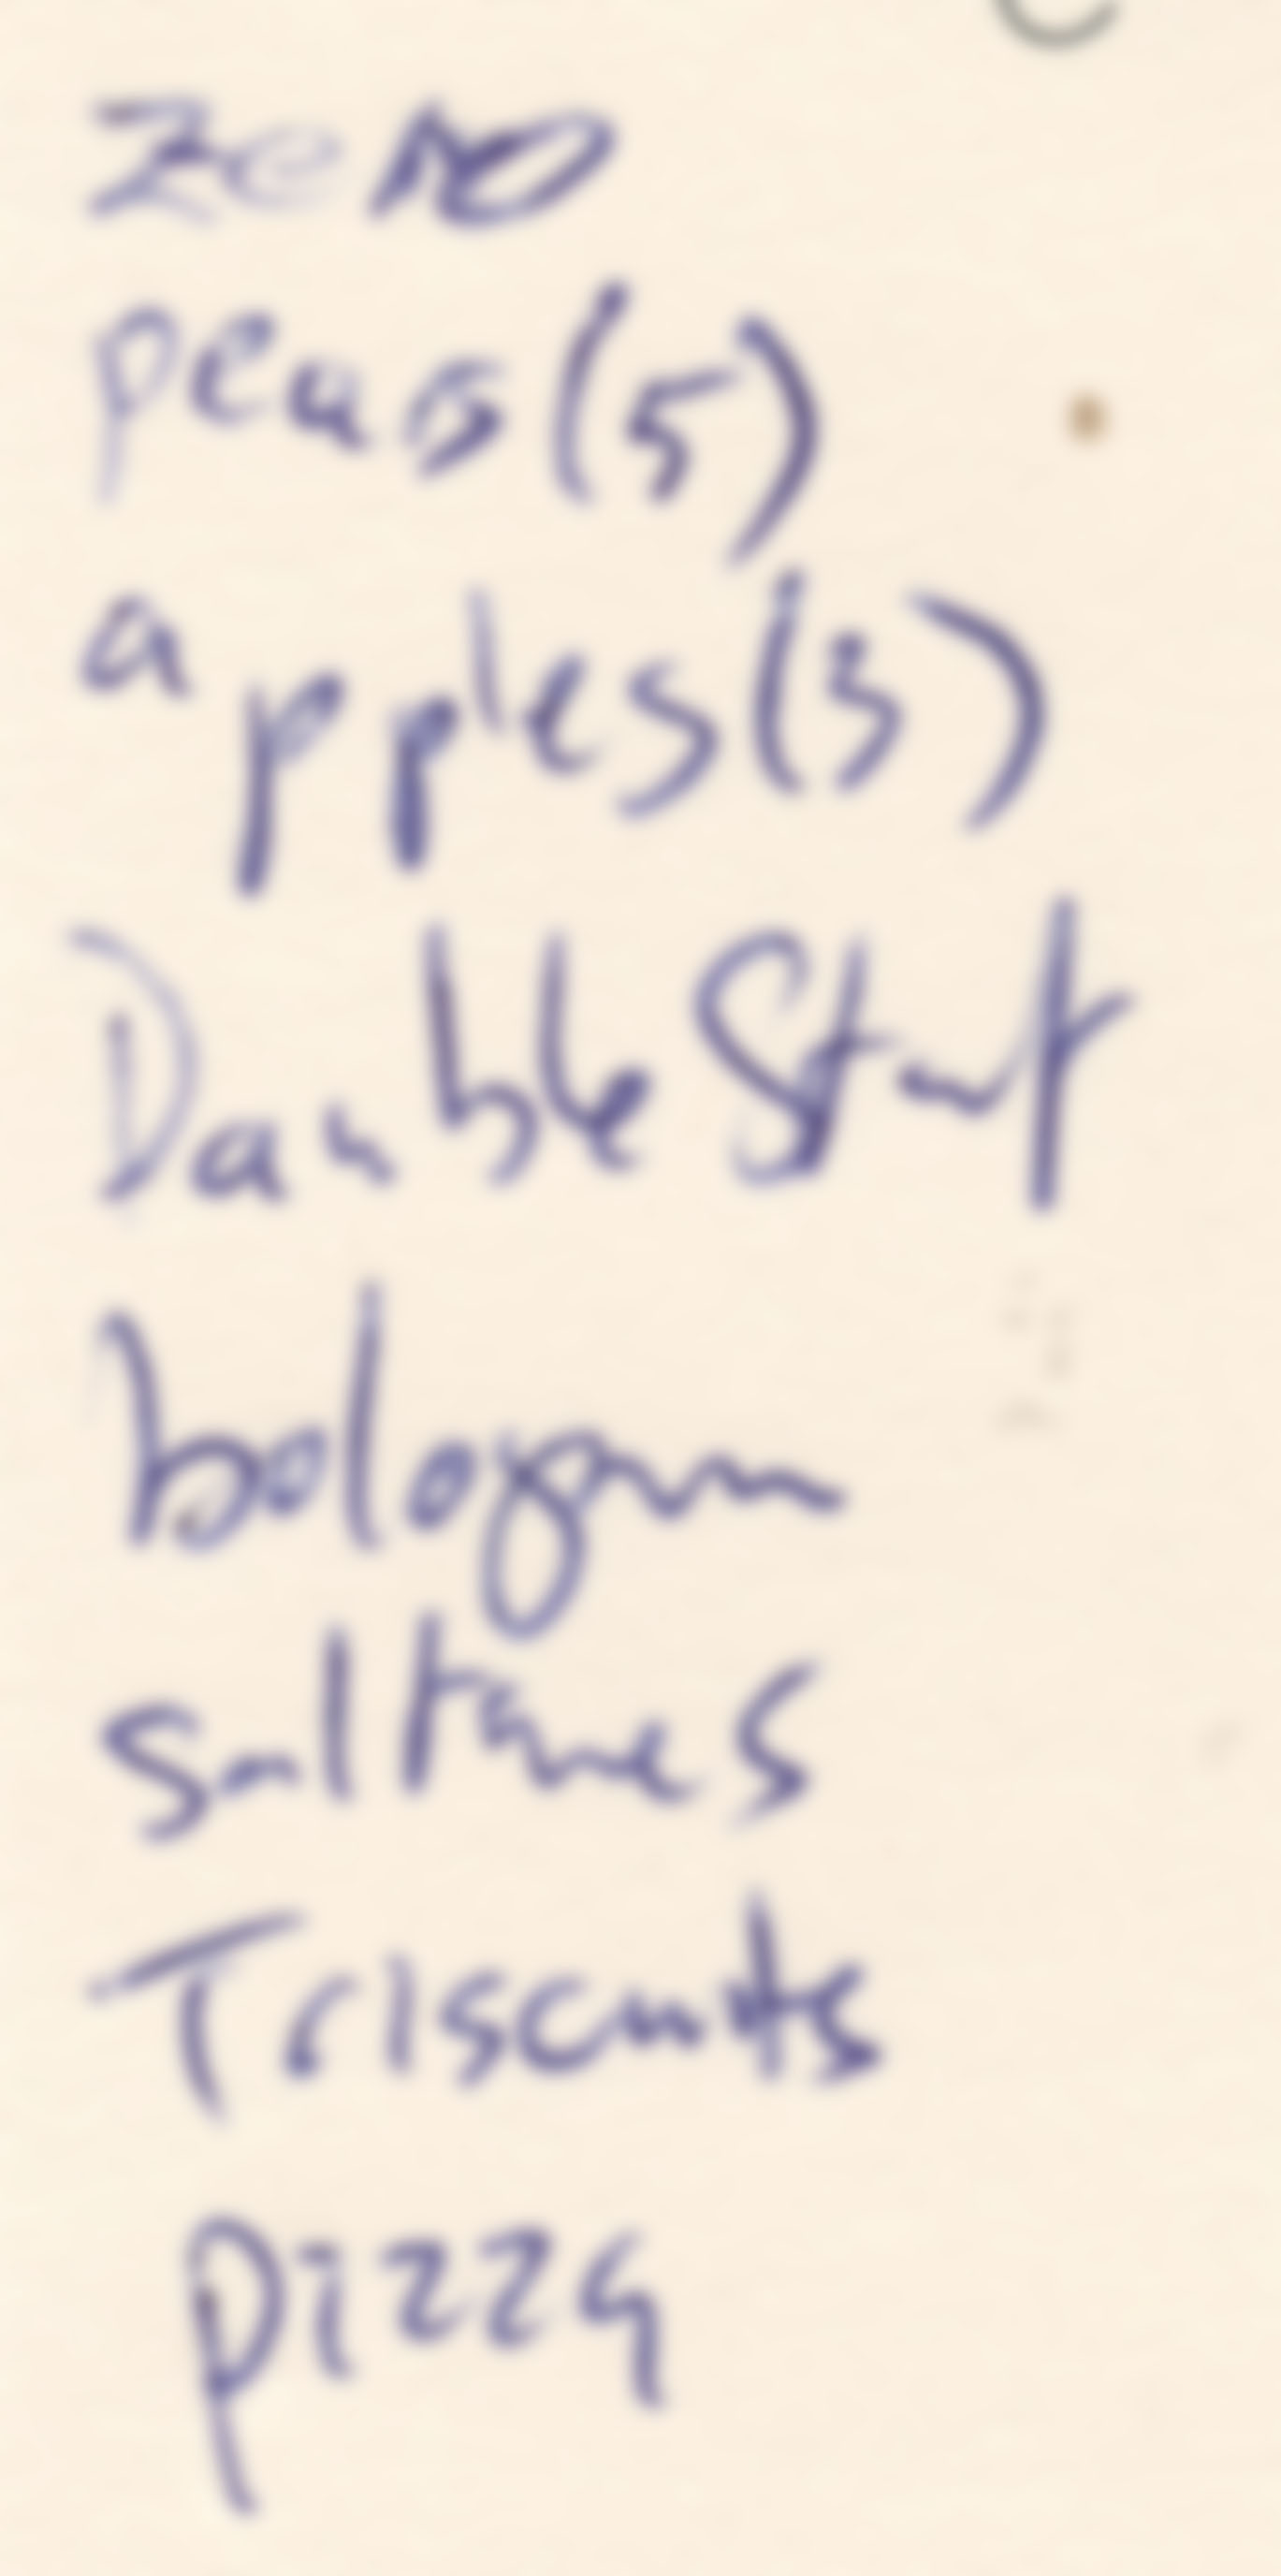 zero
peas (5)
apples (3)
Double Stuf
bologna
saltines
Triscuits
pizza